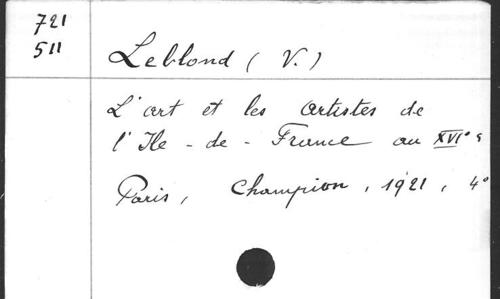 721
511
Leblond (V.)
L'art et les artistes de
l'Ile-de-France au XVIe s
Paris, Champion, 1921, 4°